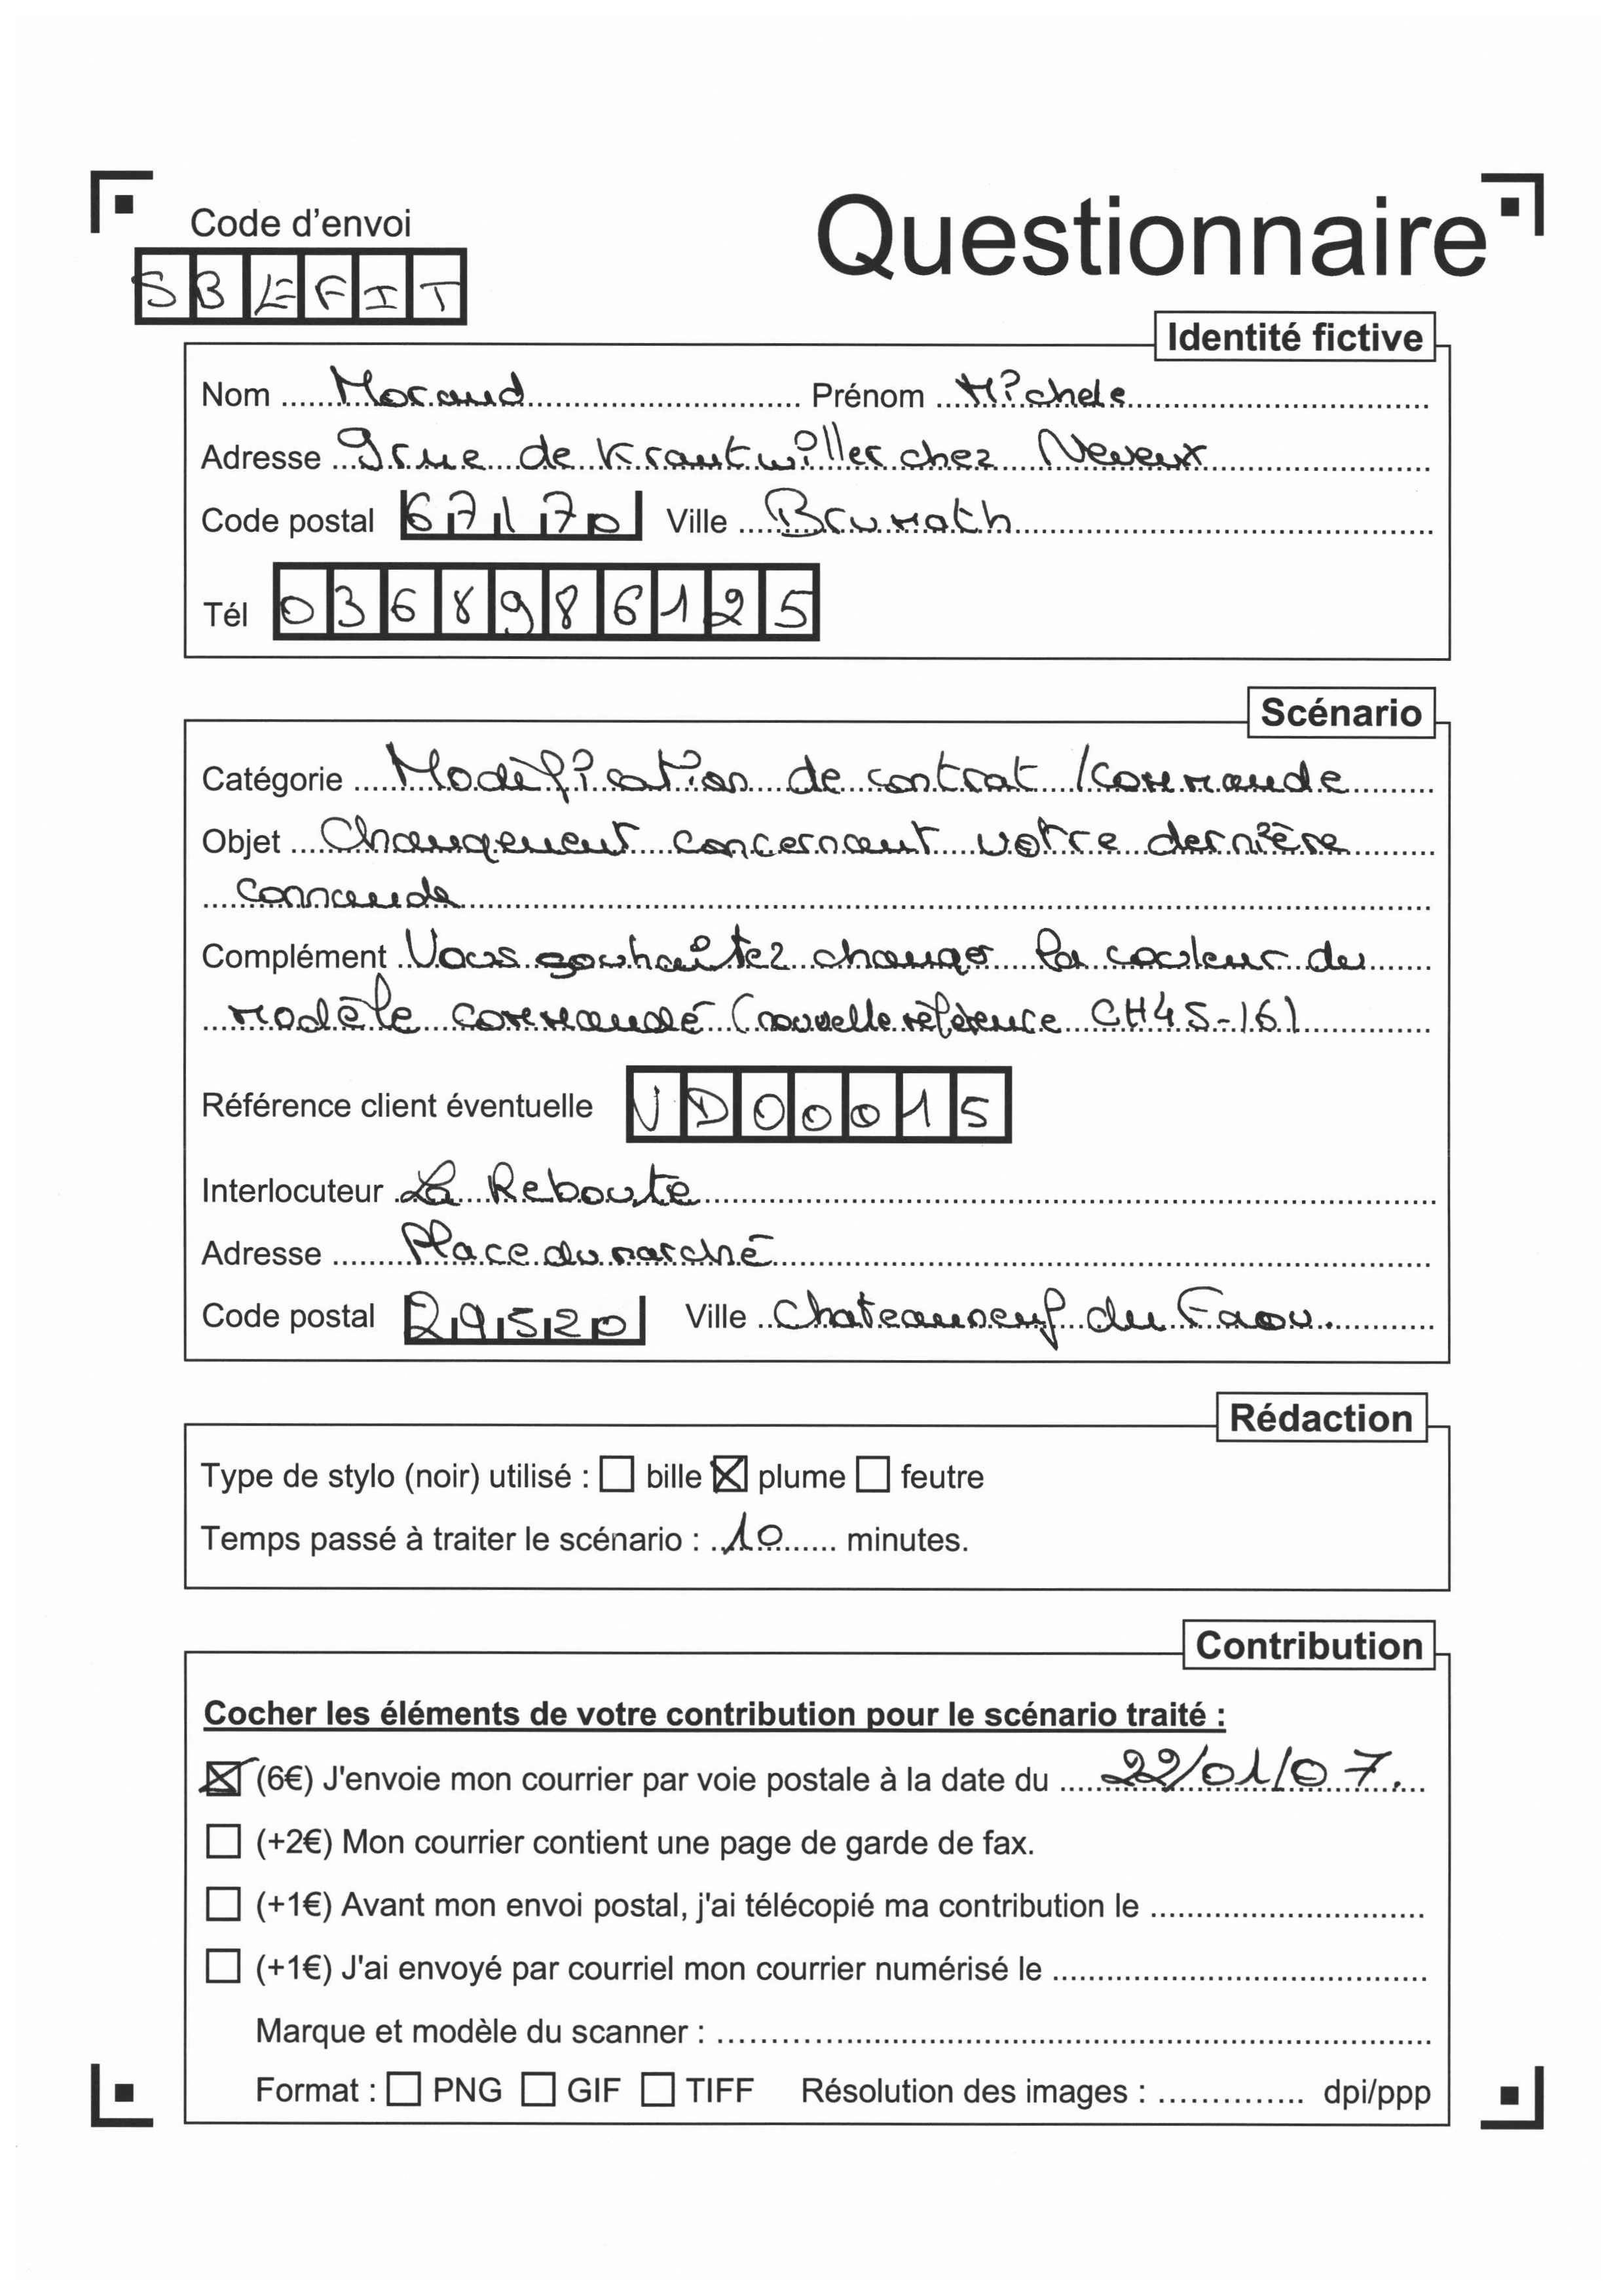 Code d'envoi
Questionnaire
SBLEFIT
Identité fictive
Nom Moraud Prénom Michele
Adresse 9 rue de Krautwiller chez Neveux
Code postal 67170 Ville Brumath
Tél 0368986125
Scénario
Catégorie Modification de contrat / commande
Objet Changement concernant votre dernière
commande
Complément Vous souhaitez changer la couleur du
modèle commandé (nouvelle référence CH45-16)
Référence client éventuelle VD00015
Interlocuteur La Reboute
Adresse Place du marché
Code postal 29520 Ville Chateauneuf du Faou.
Rédaction
Type de stylo (noir) utilisé : bille plume feutre
Temps passé à traiter le scénario : 10 minutes.
Contribution
Cocher les éléments de votre contribution pour le scénario traité :
(6€) J'envoie mon courrier par voie postale à la date du 22/01/07.
(+2€) Mon courrier contient une page de garde de fax.
(+1€) Avant mon envoi postal, j'ai télécopié ma contribution le
(+1€) J'ai envoyé par courriel mon courrier numérisé le
Marque et modèle du scanner :
Format : PNG GIF TIFF Résolution des images : dpi/ppp